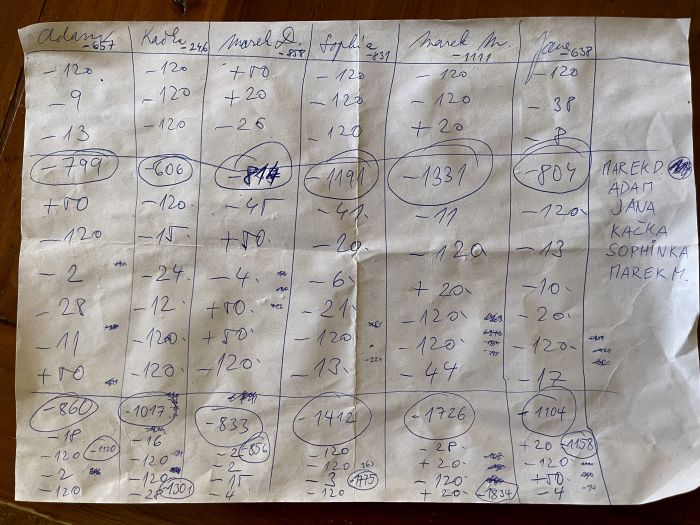 Adam Kačka Marek D. Sophia Marek M. Jana
-657 -246 -858 -831 -1111 -638
-120 -120 +50 -120 -120 -120
-9 -120 +20 -120 -120 -38
-13 -120 -26 -120 +20 -8
-799 -606 -814 -1191 -1331 -804 MAREK D.
ADAM
+50 -120 -45 -41 -11 -120 JANA
KAČKA
-120 -15 +50 -20 -120 -13 SOPHINKA
-2 -24 -4 -6 +20 -10 MAREK M.
-28 -12 +50 -21 -120 -20
-11 -120 +50 -120 -120 -120
+50 -120 -120 -13 -221 -44 -17
-860 -1017 -833 -1412 -1726 -1104
-18 -16 -2 -856 -120 -28 +20 -1158
-120 -1120 -120 -2 -120 +20 -120
-2 -120 -15 -3 -1775 -120 +50
-120 -28 -1301 -4 -120 +20 -1834 -4